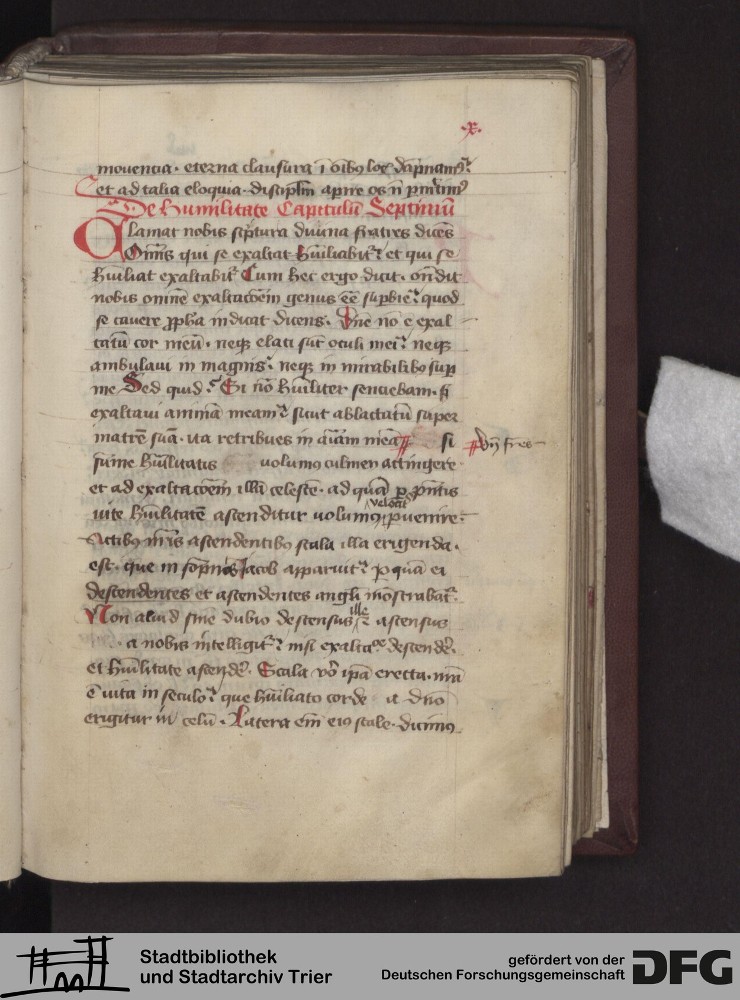 .x.
mouencia. eterna clausura ī oībꝰ locꝭ dāpnamꝰ
et ad talia eloquia. disciplm̄ apire os n̄ pmittimꝰ
De humilitate Capitulū Septimū
Clamat nobis sc̄ptura diuina fratres dicēs
Om̄is qui se exaltat hūiliabitʳ et qui se
hūiliat exaltabitʳ Cum hec ergo dicit. on̄dit
nobis omnē exaltacōem genus eē supbie. quod
se cauere ꝓpha indicat dicens. Dn̄e nō ē exal
tatū cor meū. neqꝫ elati sūt oculi mei. neqꝫ
ambulaui in magnis. neqꝫ in mirabilibꝰ sup
me Sed quid. Si nō hūiliter senciebam. si
exaltaui animā meam. sicut ablactatū super
matrē suā. ita retribues in animam meā si Vn̄ fr̄es
sūme hūilitatis volumꝰ culmen attingere
et ad exaltacōem illā celestē. ad quā ꝑ pn̄tis
uite hūilitatē ascenditur volumꝰ velociter ꝑuenire.
Actibꝰ nr̄is ascendentibꝰ scala illa erigenda.
est. que in sōpnis Jacob apparuit. ꝑ quā ei
descendentes et ascendentes angli mōstrabātʳ.
Non aliud sine dubio descensus ille ē ascensus
a nobis intelligitʳ nisi exaltacōe descendē.
et hūilitate ascendē. Scala vō ipā erecta. nrā
ē uita in seculo. que hūiliato corde a dn̄o
erigitur in celū. Latera em̄ eiꝰ scale. dicimꝰ
Stadtbibliothek
und Stadtarchiv Trier
gefördert von der
Deutschen Forschungsgemeinschaft
DFG